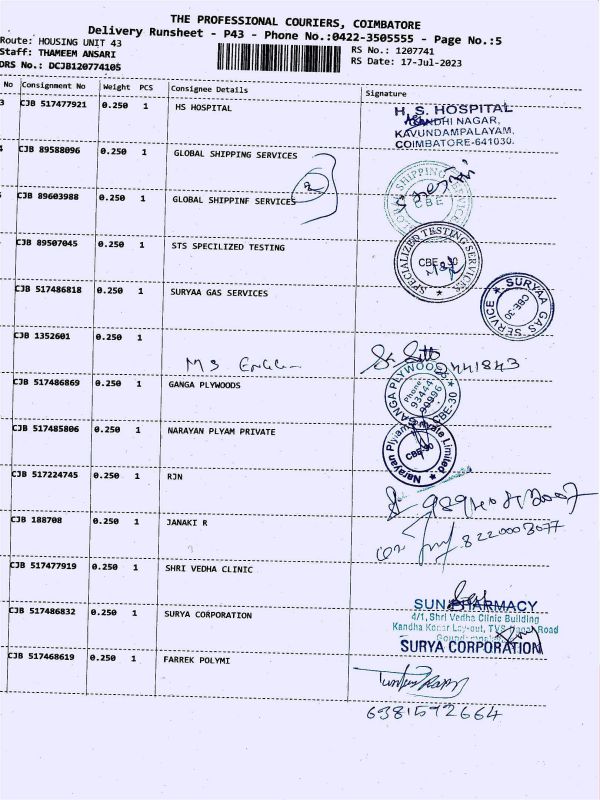 THE PROFESSIONAL COURIERS, COIMBATORE
Delivery Runsheet - P43 - Phone No.:0422-3505555 - Page No.:5
Route: HOUSING UNIT 43
RS No.: 1207741
Staff: THAMEEM ANSARI
RS Date: 17-Jul-2023
DRS No.: DCJB12077410S
No Consignment No Weight PCS Consignee Details Signature
3 CJB 517477921 0.250 1 HS HOSPITAL
H. S. HOSPITAL
NAGAR,
KAVUNDAMPALAYAM,
COIMBATORE-641030.
4 CJB 89588096 0.250 1 GLOBAL SHIPPING SERVICES
2
GLOBAL SHIPPING SERVICES
CBE
CJB 89603988 0.250 1 GLOBAL SHIPPINF SERVICES
CJB 89507045 0.250 1 STS SPECILIZED TESTING
SPECIALIZED TESTING SERVICES
CBE-30
CJB 517486818 0.250 1 SURYAA GAS SERVICES
SURYAA GAS SERVICE
CBE-30
CJB 1352601 0.250 1
MS
CJB 517486869 0.250 1 GANGA PLYWOODS
GANGA PLYWOODS
Phone:
93444
90996
CBE-30
CJB 517485806 0.250 1 NARAYAN PLYAM PRIVATE
Narayan Plyam Private Limited
CBE-30
CJB 517224745 0.250 1 RJN
CJB 188708 0.250 1 JANAKI R
8220003077
CJB 517477919 0.250 1 SHRI VEDHA CLINIC
SUN PHARMACY
4/1, Shri Vedha Clinic Building
Kandha Konar Lay-out, TVS Nagar Road
CJB 517486832 0.250 1 SURYA CORPORATION
SURYA CORPORATION
CJB 517468619 0.250 1 FARREK POLYMI
6381572664